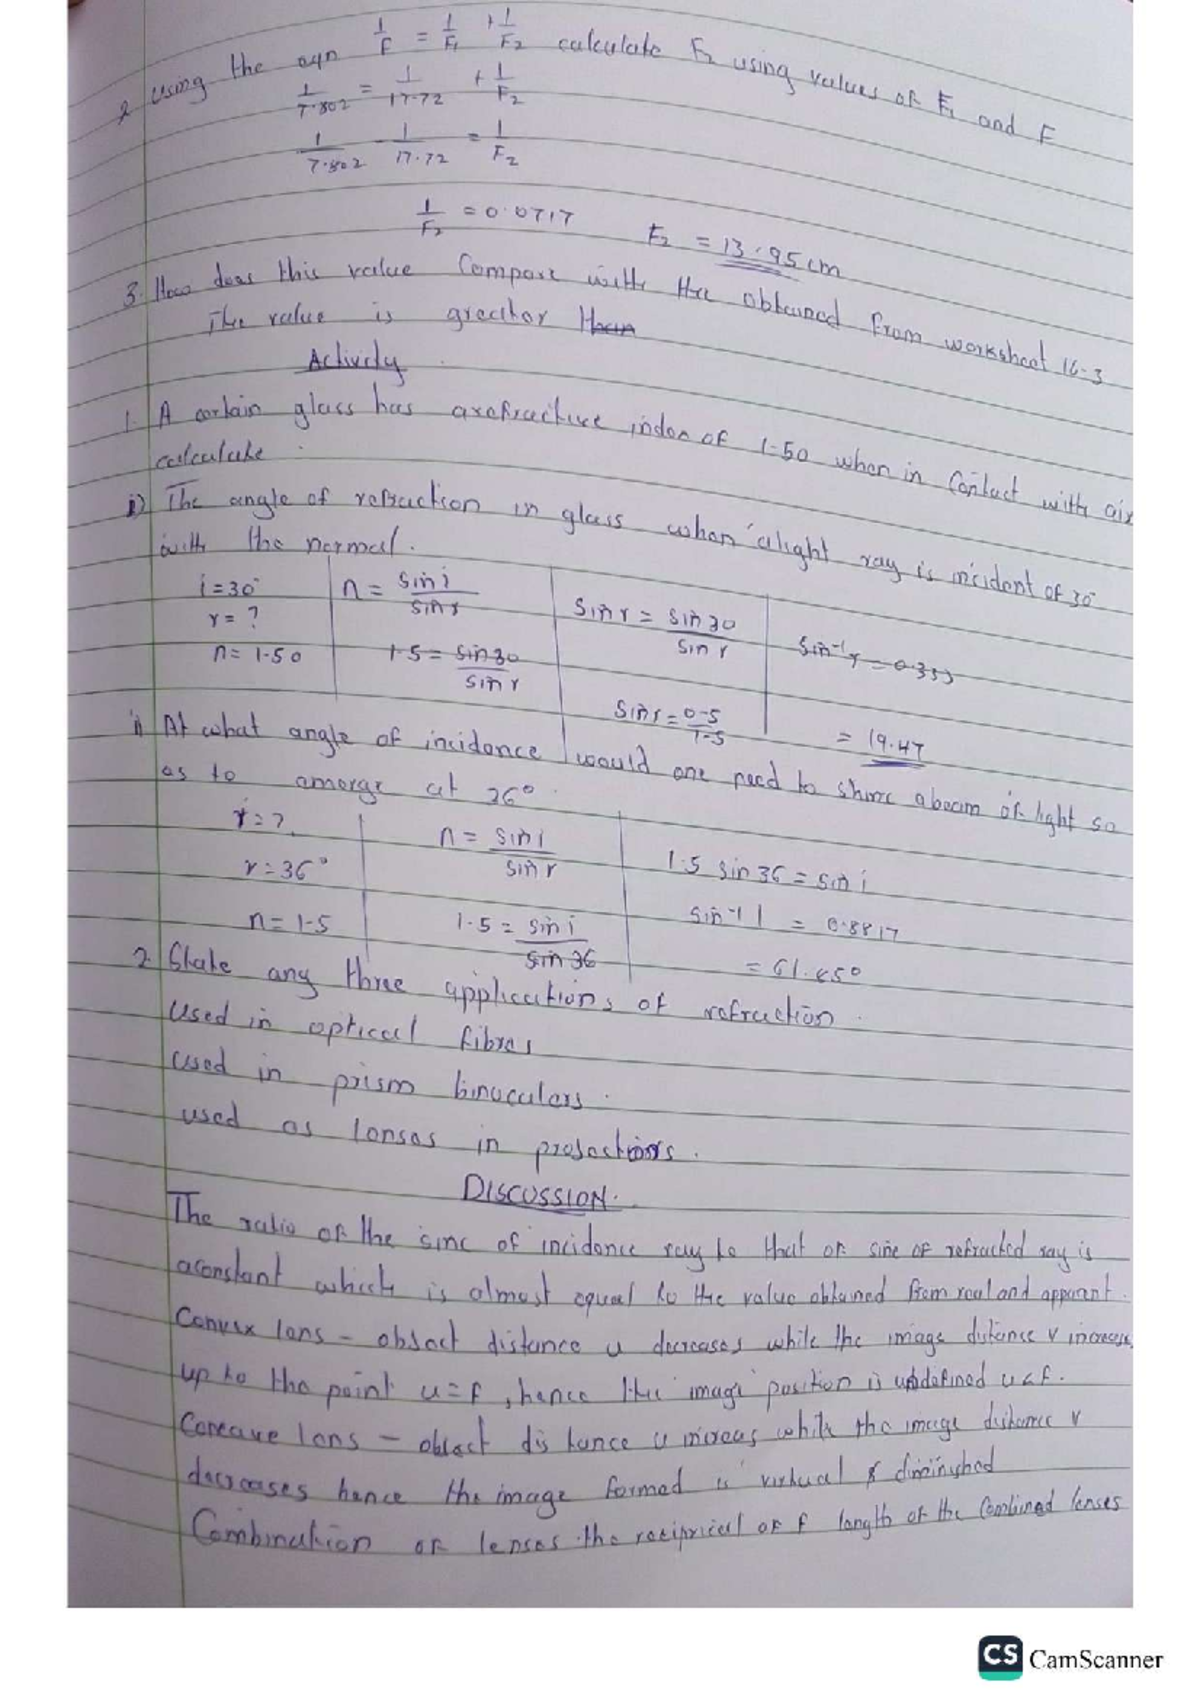 2 Using the eqn 1/F = 1/F1 + 1/F2 calculate F2 using values of F1 and F
1/7.802 = 1/17.72 + 1/F2
1/7.802 - 1/17.72 = 1/F2
1/F2 = 0.0717 F2 = 13.95cm
3. How does this value Compare with the obtained from worksheet 16.3
The value is greater than
Activity
1. A certain glass has a refractive index of 1.50 when in Contact with air
calculate.
i) The angle of refraction in glass when a light ray is incident of 30°
with the normal.
i = 30° n = sin i / sin r sin r = sin 30 / sin r sin⁻¹ r = 0.333
r = ?
n = 1.50 1.5 = sin 30 / sin r sin r = 0.5/1.5 = 19.47
ii At what angle of incidence would one need to shine a beam of light so
as to emerge at 36°.
i = ? n = sin i / sin r 1.5 sin 36 = sin i
r = 36°
n = 1.5 1.5 = sin i / sin 36 sin⁻¹ i = 0.8817
= 61.850
2 State any three applications of refraction.
Used in optical fibres
used in prism binoculars.
used as lenses in projections.
DISCUSSION.
The ratio of the sine of incidence ray to that of sine of refracted ray is
a constant which is almost equal to the value obtained from real and apparent.
Convex lens - object distance u decreases while the image distance v increases
up to the point u=f, hence the image position is undefined u<f.
Concave lens - object distance u increas while the image distance v
decreases hence the image formed is virtual & diminished
Combination of lenses the reciprical of f length of the Combined lenses
CS CamScanner